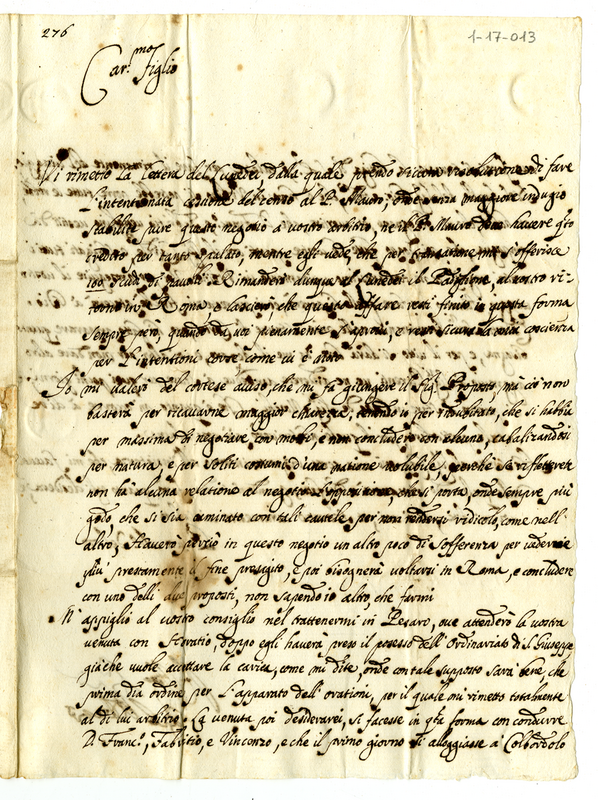 276
1-17-013
Car.mo Figlio
Vi rimetto la lettera del dalla quale prendo di fare
L'intentionata del censo al P. Mauro, onde senza maggiore indugio
stabilite pure questo negotio a vostro arbitrio, ne il P. Mauro havere qto
credito per tanto mentre egli vede, che per si offerisce
100 scudi di Rimanderò dunque al il al vostro ri-
torno in Roma, e lascierò che questo affare resti finito in questa forma
sempre però, quando da voi pienamente s'aprovi, e resti sicura la mia coscienza
per l'intentioni come vi è noto
Io mi valerò del cortese aviso, che mi fa giungere il Sig. Proposto, mà ciò non
basterà per ricavarne maggior chiarezza, tenendo io per indubitato, che si habbia
per massima di negotiare con molti, e non concludere con alcuno, cabalizandosi
per natura, e per soliti comuni d'una natione volubile, perche se rifletterete
non hà alcuna relatione al negotio si porta, onde sempre più
godo che si sia caminato con tali cautele per non rendersi ridicolo, come nell'
altro, Haverò perciò in questo negotio un altro poco di sofferenza per vederne
più prestamente il fine presagito, e poi bisognerà voltarsi in Roma, e concludere
con uno delli due proposti, non sapendo io altro che farmi
M'appiglio al vostro consiglio nel trattenermi in Pesaro, ove attenderò la vostra
venuta con Horatio, doppo egli haverà preso il possesso dell'Ordinariato di S. Giuseppe
già che vuole accettare la carica, come mi dite, onde con tale supposto sarà bene che
prima dia ordine per l'apparato dell'orationi, per il quale mi rimetto totalmente
al di lui arbitrio. La venuta poi desiderarei, si facesse in qta forma con condurre
D. Franc.o, Fabritio, e Vincenzo, e che il primo giorno si alloggiasse a Colbordolo